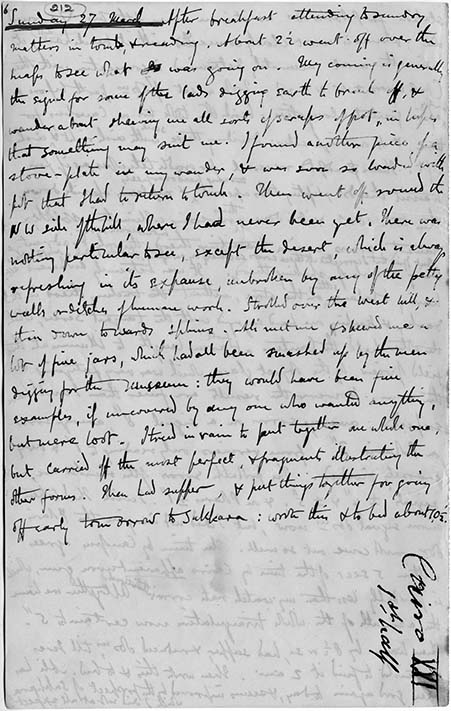 6 212
Sunday 27 March After breakfast attending to sundry
matters in tomb & reading. About 2½ went off over the
maps to see what was going on. My coming is generally
the signal for some of the lads digging earth to break off, &
wander about shewing me all sorts of scraps of pot, in hopes
that something may suit me. I found another piece of a
stone-plate in my wander, & was soon so loaded with
pot that I had to return to tomb. Then went off round the
NW side of the hill, where I had never been yet. There was
nothing particular to see, except the desert, which is always
refreshing in its expanse, unbroken by any of the petty
walls & ditches of human work. Strolled over the west hill, &
then down towards Sphinx. Ali met me & shewed me a
lot of fine jars, which had all been smashed up by the men
digging for the Museum: they would have been fine
examples, if uncovered by any one who wanted anything,
but mere loot. I tried in vain to put together one whole one,
but carried off the most perfect, & fragments illustrating the
other forms. Then had supper, & put things together for going
off early tomorrow to Sakkara: wrote this & to bed about 10½.
Cairo XVI
1st half